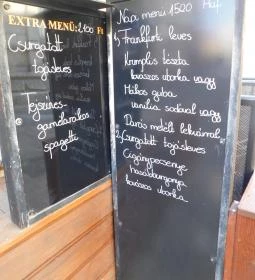 EXTRA MENÜ: 2100 Ft
Csurgatott
tojásleves
Tejszínes-
garnélarákos
spagetti
Napi menü 1520 Huf.
1, Frankfurti leves
Krumplis tészta
kovászos uborka vagy
Mákos guba
vanília sodóval vagy
Darás metélt lekvárral
2, Csurgatott tojásleves
Cigánypecsenye
hasábburgonya
kovászos uborka